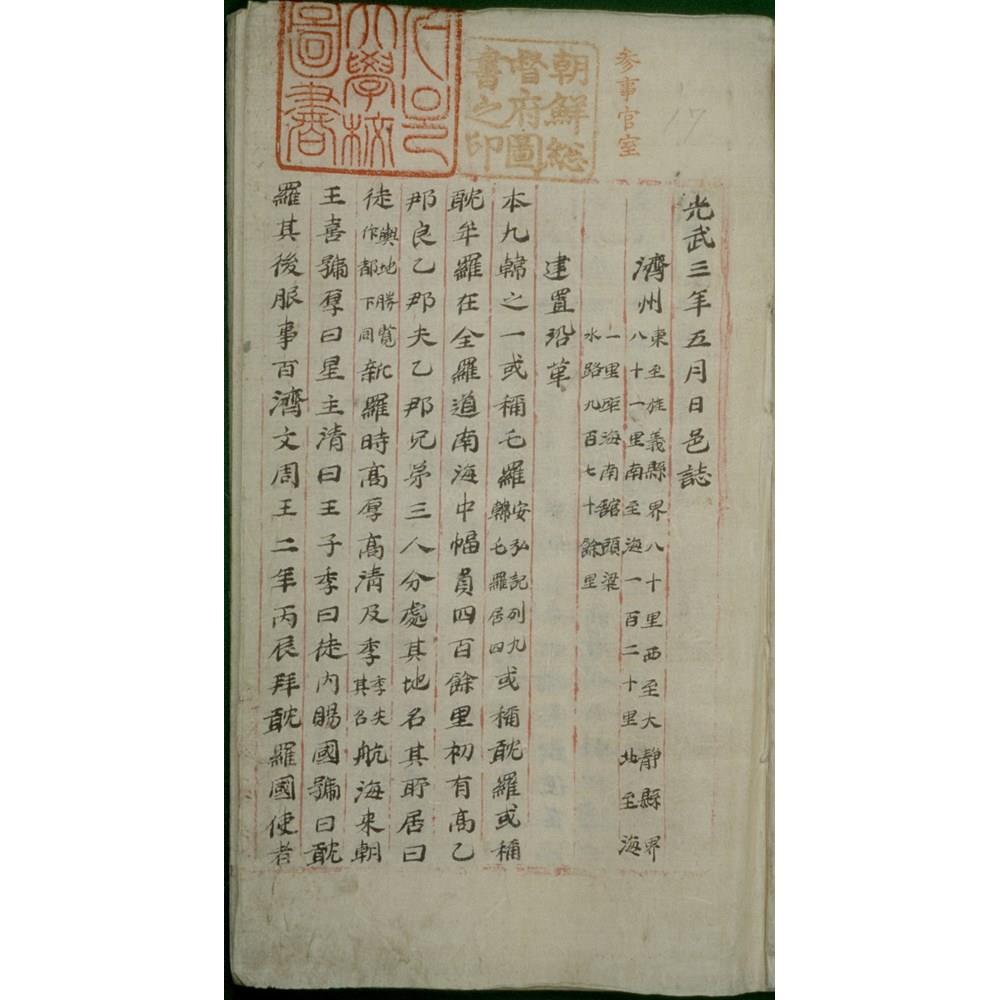 参事官室
17
朝鮮総
督府圖
書之印
서울
大學校
圖書
光武三年五月日邑誌
濟州東至旌義縣界八十里西至大靜縣界
八十一里南至海一百二十里北至海
一里距海南舘頭梁
水路九百七十餘里
建置沿革
本九韓之一或稱乇羅安弘記列九韓乇羅居四或稱耽羅或稱
耽牟羅在全羅道南海中幅員四百餘里初有高乙
那良乙那夫乙那兄弟三人分處其地名其所居曰
徒輿地勝覧作都下同新羅時高厚高清及季季失其名航海来朝
王喜號厚曰星主清曰王子季曰徒内賜國號曰耽
羅其後服事百濟文周王二年丙辰拜耽羅國使者